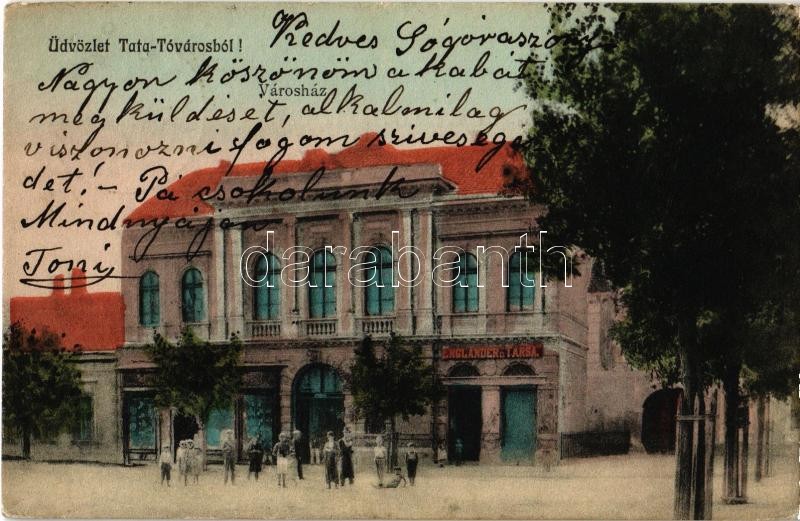 Üdvözlet Tata-Tóvárosból!
Városház
Kedves Sógórasszony
Nagyon köszönöm a kabát
meg küldését, alkalmilag
viszonozni fogom szivesege
det! - Pá csokolunk
Mindnyájan
Toni
darabanth
ENGLÄNDER és TÁRSA.